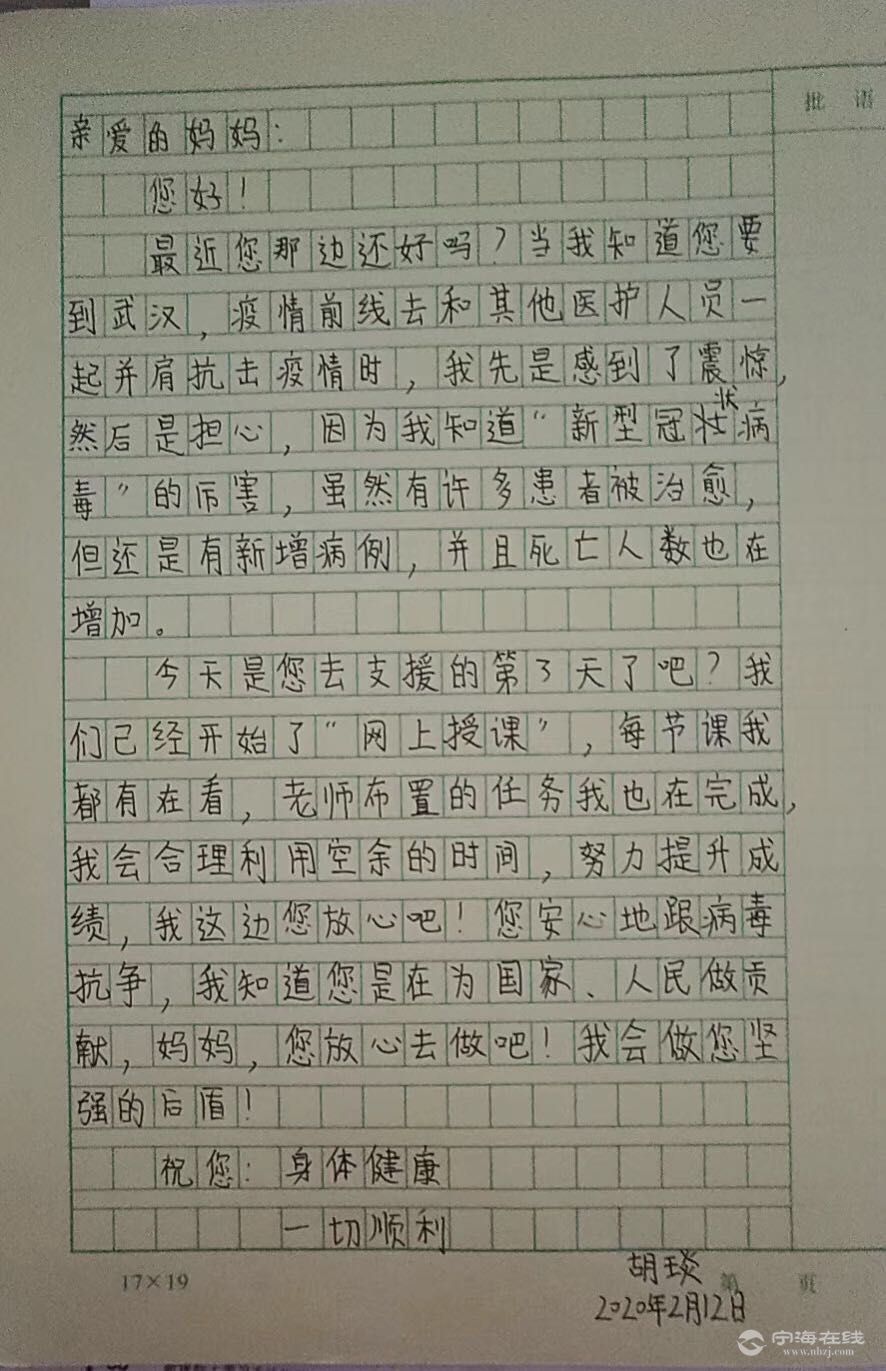 批语
亲爱的妈妈：
您好！
最近您那边还好吗？当我知道您要
到武汉，疫情前线去和其他医护人员一
起并肩抗击疫情时，我先是感到了震惊，
然后是担心，因为我知道“新型冠壮状病
毒”的厉害，虽然有许多患者被治愈，
但还是有新增病例，并且死亡人数也在
增加。
今天是您去支援的第3天了吧？我
们已经开始了“网上授课”，每节课我
都有在看，老师布置的任务我也在完成，
我会合理利用空余的时间，努力提升成
绩，我这边您放心吧！您安心地跟病毒
抗争，我知道您是在为国家、人民做贡
献，妈妈，您放心去做吧！我会做您坚
强的后盾！
祝您：身体健康
一切顺利
17×19 第 页
胡琰
2020年2月12日
宁海在线
www.nhzj.com